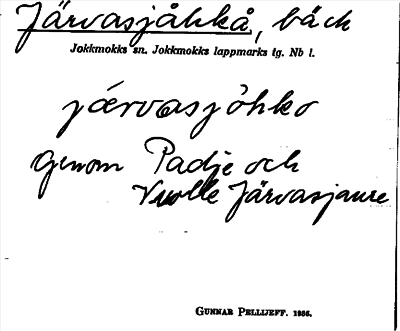 Järvasjåkkå, bäck
Jokkmokks sn. Jokkmokks lappmarks tg. Nb l.
järvasjŏhko
genom Padje och
Vuolle Järvasjaure
GUNNAR PELLIJEFF. 1956.